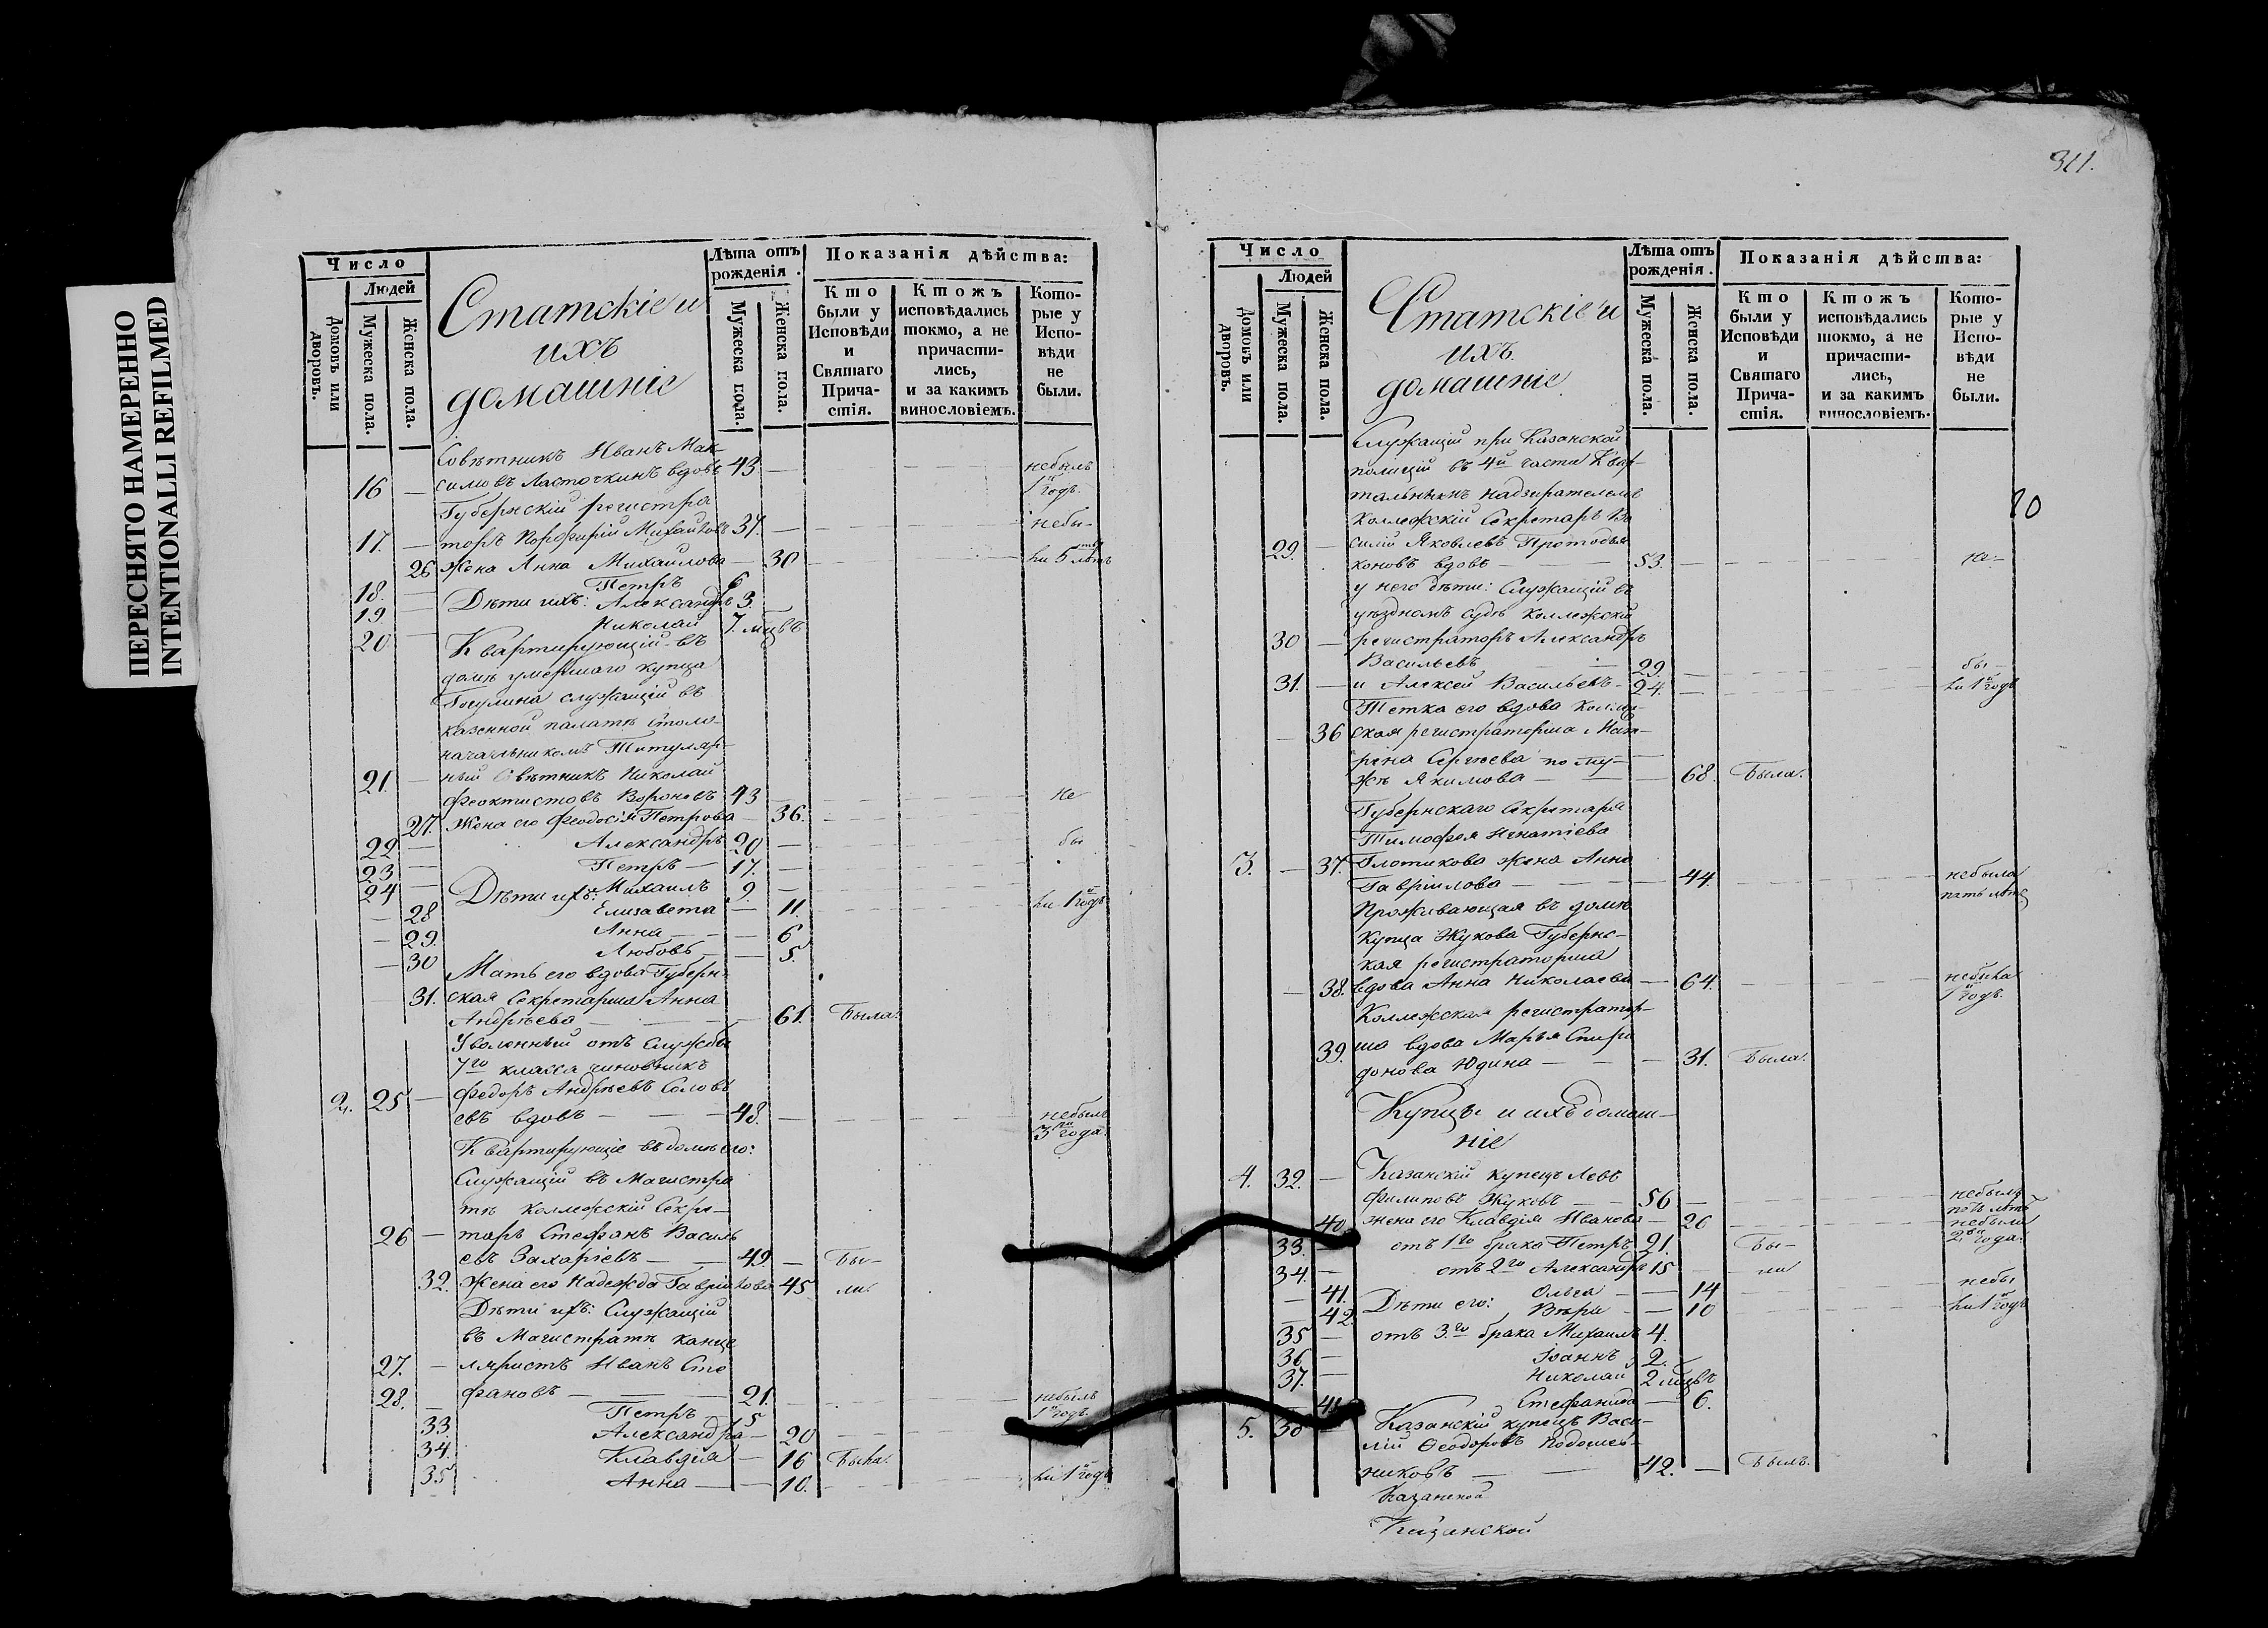 ПЕРЕСНЯТО НАМЕРЕННО
INTENTIONALLI REFILMED
Число
Людей
Домовъ или дворовъ.
Мужеска пола.
Женска пола.
Статскіе и
ихъ
домашніе
Лѣта отъ рожденія.
Мужеска пола.
Женска пола.
Показанія дѣйства:
Кто были у Исповѣди и Святаго Причастія.
Ктожъ исповѣдались токмо, а не причастились, и за какимъ винословіемъ.
Которые у Исповѣди не были.
Совѣтникъ Иванъ Мак-
16 — симовъ Ласточкинъ вдовъ 43 — небылъ 1й годъ.
Губернскій регистра
17. — торъ Порфирій Михайловъ 37. — небы-
26 жена Анна Михаилова — 30 ли 5ть лѣтъ
18. — Петръ 6
19 — Дѣти ихъ: Александръ 3.
20 — Николай 7. мцвъ
Квартирующій въ
домѣ умершаго купца
служащій въ
казенной палатѣ Столо-
начальникомъ Титуляр-
21. — ный Совѣтникъ Николай
Феоктистовъ Вороновъ 43 — не
27. жена его Феодосія Петрова — 36.
22 — Александръ 20 — бы
23 — Петръ — 17. —
24 — Дѣти ихъ: Михаилъ 9. —
— 28 Елизавета — 11. ли 1й годъ
— 29. Анна — 6
— 30 Любовь — 5.
Мать его вдова Губерн-
31. ская Секретарша Анна
Андрѣева — 61. Была.
Уволенный отъ Службы
7го класса чиновникъ
2. 25 — Федоръ Андрѣевъ Соловь
евъ вдовъ — 48. — небылъ 3ри года.
Квартирующіе въ домѣ его:
Служащій въ Магистра
тѣ коллежскій Секре-
26 — таръ Стефанъ Василь
евъ Захаріевъ — 49. — Бы-
32. Жена его Надежда Гаврилова 45 ли.
Дѣти ихъ: Служащій
въ Магистратѣ канце
27. — ляристъ Иванъ Сте
28. — фановъ — 21. — небылъ 1й годъ.
Петръ 5
33. Александра — 20
34. Клавдія — 16 Была.
35. Анна — 10. ли 1й годъ
311.
20
Число
Людей
Домовъ или дворовъ.
Мужеска пола.
Женска пола.
Статскіе и
ихъ
домашніе
Лѣта отъ рожденія.
Мужеска пола.
Женска пола.
Показанія дѣйства:
Кто были у Исповѣди и Святаго Причастія.
Ктожъ исповѣдались токмо, а не причастились, и за какимъ винословіемъ.
Которые у Исповѣди не были.
Служащій при Казанской
полиціи въ 4й части Квар-
тальнымъ надзирателемъ
коллежскій Секретарь Ва
29. — силій Яковлевъ Протодья
коновъ вдовъ — 53. — не-
у него дѣти: Служащій въ
уѣздномъ судѣ коллежскій
30 — регистраторъ Александръ
Васильевъ — 29. — бы-
31. — и Алексѣй Васильевъ — 24. — ли 1й годъ
Тетка его вдова Коллеж-
— 36 ская регистраторша Мат-
рена Сергѣева по му-
жѣ Якимова — 68. Была.
Губернскаго Секретаря
Тимофея Игнатіева
3. — 37. Плотникова жена Анна
Гавриілова — 44. небыла пять лѣтъ
Проживающая въ домѣ
Купца Жукова Губернс-
кая регистраторша
— 38. вдова Анна Николаева — 64. небыла 1й годъ.
Коллежская регистратор-
39. ша вдова Марья Спири
донова Юдина — 31. Была.
Купцы и ихъ домаш-
ніе
4. 32. — Казанскій купецъ Левъ
Филиповъ Жуковъ — 56 — небылъ лѣтъ
40 жена его Клавдія Иванова — 26 небыла 2ва года.
33. — отъ 1го брака Петръ 21. Бы-
34. — отъ 2го Александръ 15 — ли
— 41. Дѣти его: Ольга — 14 небы
— 42 Вѣра — 10 ли 1й годъ
35 — отъ 3го брака Михаилъ 4.
36 — Іоаннъ 2.
37. — Николай 2 мцвъ
Стефанида — 6.
5. 38 Казанскій купецъ Васи-
лій Ѳеодоровъ Подошев-
никовъ — 42. — Былъ.
Казанской
Казанской